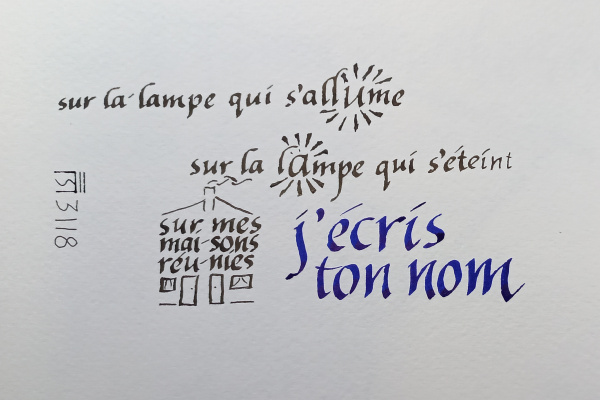 sur la lampe qui s'allume
sur la lampe qui s'éteint
sur mes
mai-sons
réu-nies
j'écris
ton nom
3118